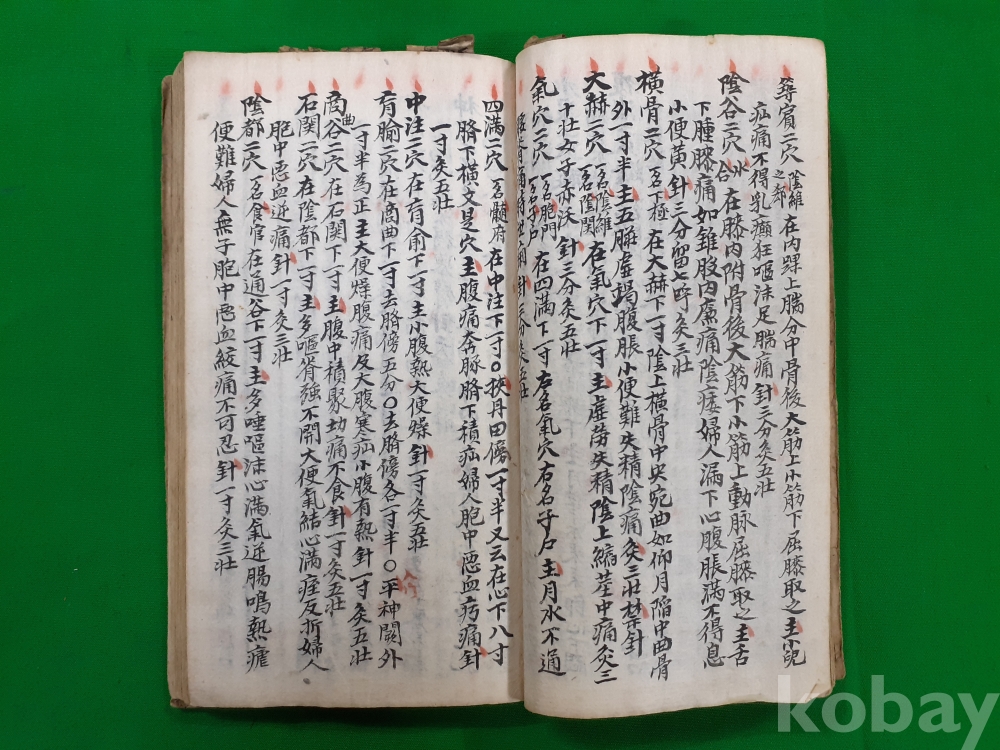 築賓二穴 陰維之郄 在內踝上腨分中骨後大筋上小筋下屈膝取之主小兒
疝痛不得乳癲狂嘔沫足腨痛針三分灸五壯
陰谷二穴 水合 在膝內附骨後大筋下小筋上動脉屈膝取之主舌
下腫膝痛如錐股內廉痛陰痿婦人漏下心腹脹滿不得息
小便黃針三分留七呼灸三壯
橫骨二穴 一名下極 在大赫下一寸陰上橫骨中央宛曲如仰月陷中曲骨
外一寸半主五脉虛竭腹脹小便難失精陰痛灸三壯禁針
大赫二穴 一名陰維 一名陰関 在氣穴下一寸主虛勞失精陰上縮莖中痛灸三
十壯女子赤沃針三分灸五壯
氣穴二穴 一名胞門 一名子户 在四滿下一寸左名氣穴右名子户主月水不通
四滿二穴 一名髓府 在中注下一寸〇挾丹田傍一寸半又云在心下八寸
臍下橫文是穴主腹痛奔豚臍下積疝婦人胞中惡血㽲痛針
一寸灸五壯
中注二穴在肓俞下一寸主小腹熱大便燥針一寸灸五壯
肓腧二穴在商曲下一寸去臍傍五分〇去臍傍各一寸半〇平神闕外
一寸半為正主大便燥腹痛及大腹寒疝小腹有熱針一寸灸五壯
商曲谷二穴在石関下一寸主腹中積聚切痛不食針一寸灸五壯
石関二穴在陰都下一寸主多嘔脊強不開大便氣結心滿痓反折婦人
胞中惡血逆痛針一寸灸三壯
陰都二穴 一名食宮 在通谷下一寸主多唾嘔沫心滿氣逆腸鳴熱瘧
便難婦人無子胞中惡血絞痛不可忍針一寸灸三壯
kobay